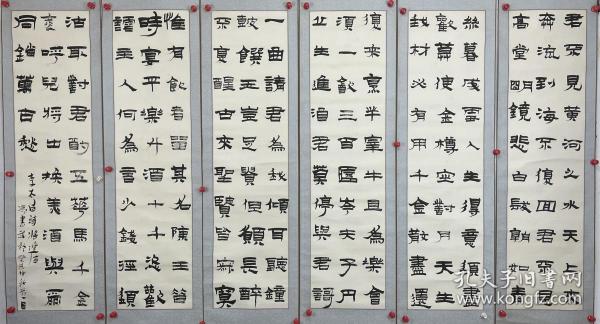 君不見黄河之水天上来
奔流到海不復回君不見
高堂明鏡悲白髮朝如青
絲暮成雪人生得意須盡
歡莫使金樽空對月天生
我材必有用千金散盡還
復來烹羊宰牛且為樂會
須一飲三百杯岑夫子丹
丘生進酒君莫停與君歌
一曲請君為我傾耳聽鐘
鼓饌玉豈足貴但願長醉
不醒古來聖賢皆寂寞
惟有飲者留其名陳王昔
時宴平樂斗酒十千恣歡
謔主人何為言少錢徑須
沽取對君酌五華馬千金
裘呼兒將出換美酒與爾
同銷萬古愁
李太白詩將進酒
孔夫子旧书网
www.kongfz.com